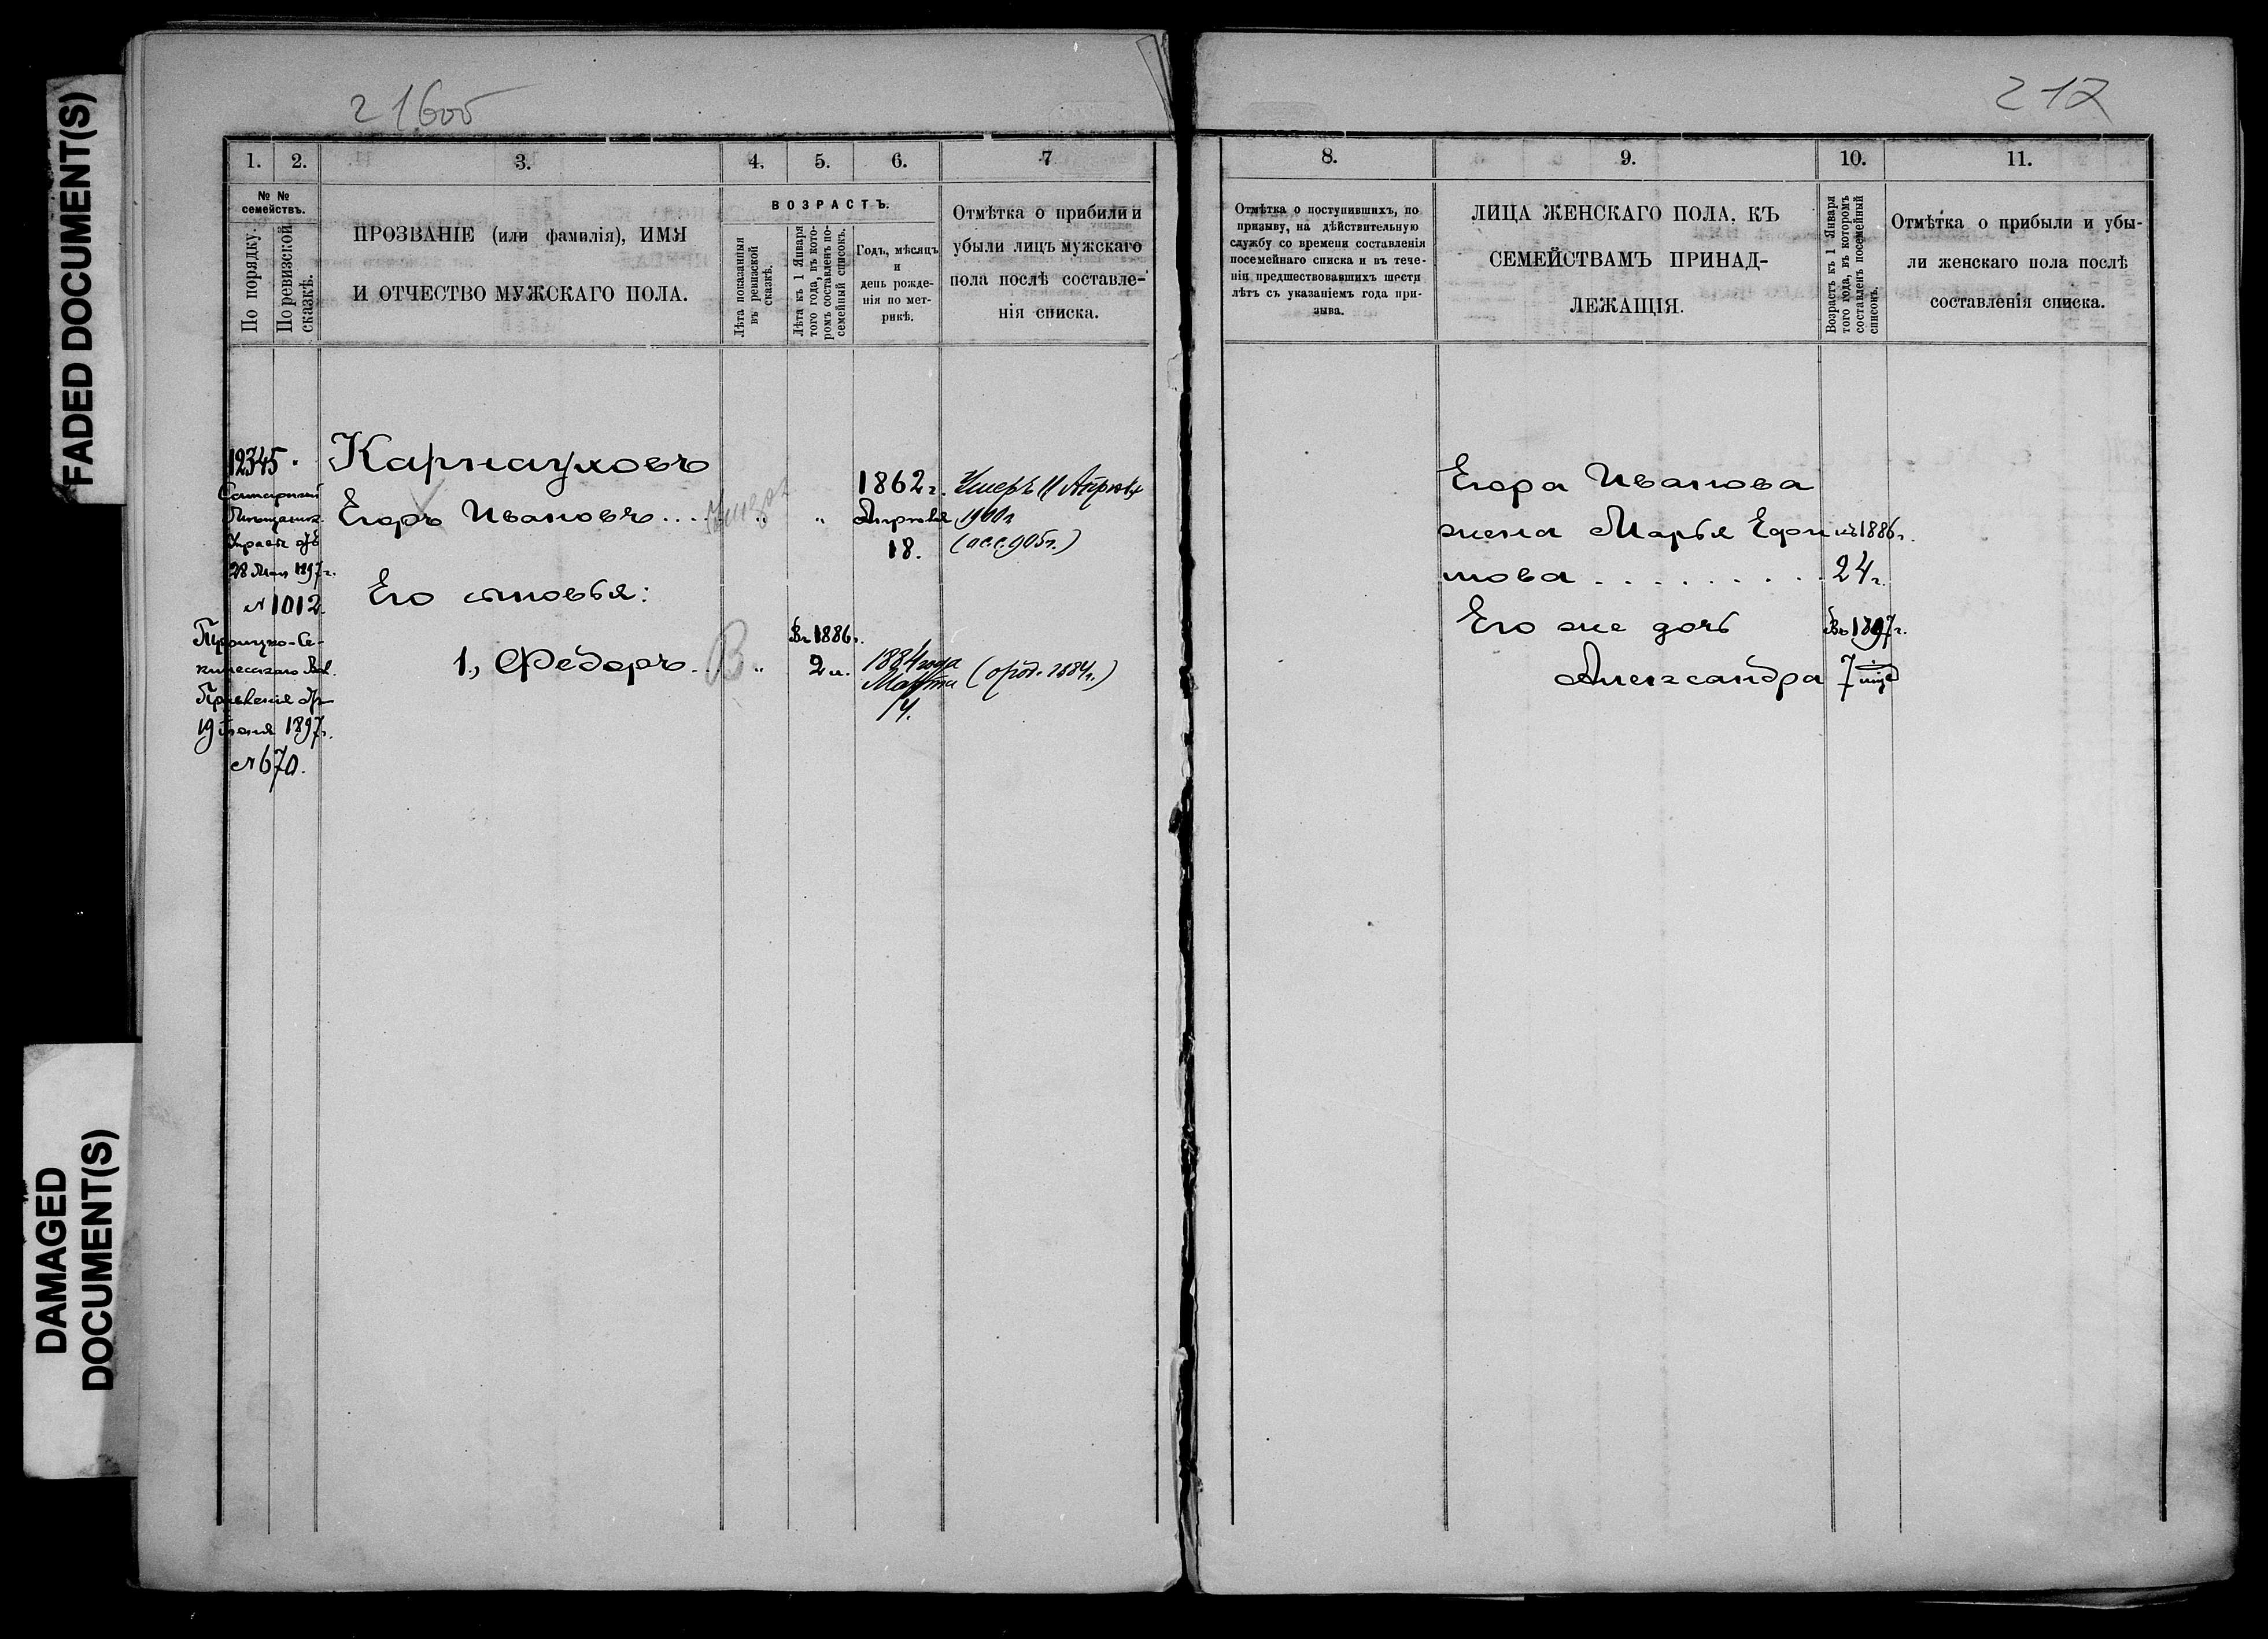 FADED DOCUMENT(S)
DAMAGED
DOCUMENT(S)
216об
1. 2. 3. 4. 5. 6. 7
№ №
семействъ.
По порядку.
По ревизской
сказкѣ.
ПРОЗВАНІЕ (или фамилія), ИМЯ
И ОТЧЕСТВО МУЖСКАГО ПОЛА.
ВОЗРАСТЪ.
Лѣта показанія
въ ревизской
сказкѣ.
Лѣта къ 1 Января
того года, въ кото-
ромъ составленъ по-
семейный списокъ.
Годъ, мѣсяцъ
и
день рожде-
нія по мет-
рикѣ.
Отмѣтка о прибыли и
убыли лицъ мужскаго
пола послѣ составле-
нія списка.
12345
Самарской
Мѣщанск.
Управы отъ
28 Мая 1897г.
№ 1012.
Правленія отъ
19 Іюня 1897г.
№ 670.
Карнауховъ
Егоръ Ивановъ....
Его сыновья:
1., Ѳедоръ..
В
Въ 1886г.
2 л.
1862г.
Апрѣля
18.
1884 года
Марта
14.
Умеръ 11 Апрѣля
1900г
(ис.с.905г.)
(1884г.)
217
8. 9. 10. 11.
Отмѣтка о поступившихъ, по
призыву, на дѣйствительную
службу со времени составленія
посемейнаго списка и въ тече-
ніи предшествовавшихъ шести
лѣтъ съ указаніемъ года при-
зыва.
ЛИЦА ЖЕНСКАГО ПОЛА, КЪ
СЕМЕЙСТВАМЪ ПРИНАД-
ЛЕЖАЩІЯ.
Возрастъ къ 1 Января
того года, въ которомъ
составленъ посемейный
списокъ.
Отмѣтка о прибыли и убы-
ли женскаго пола послѣ
составленія списка.
Егора Иванова
жена Марья Ефи къ 1886г.
мова......... 24г.
Его же дочь Въ 1897г.
Александра 7